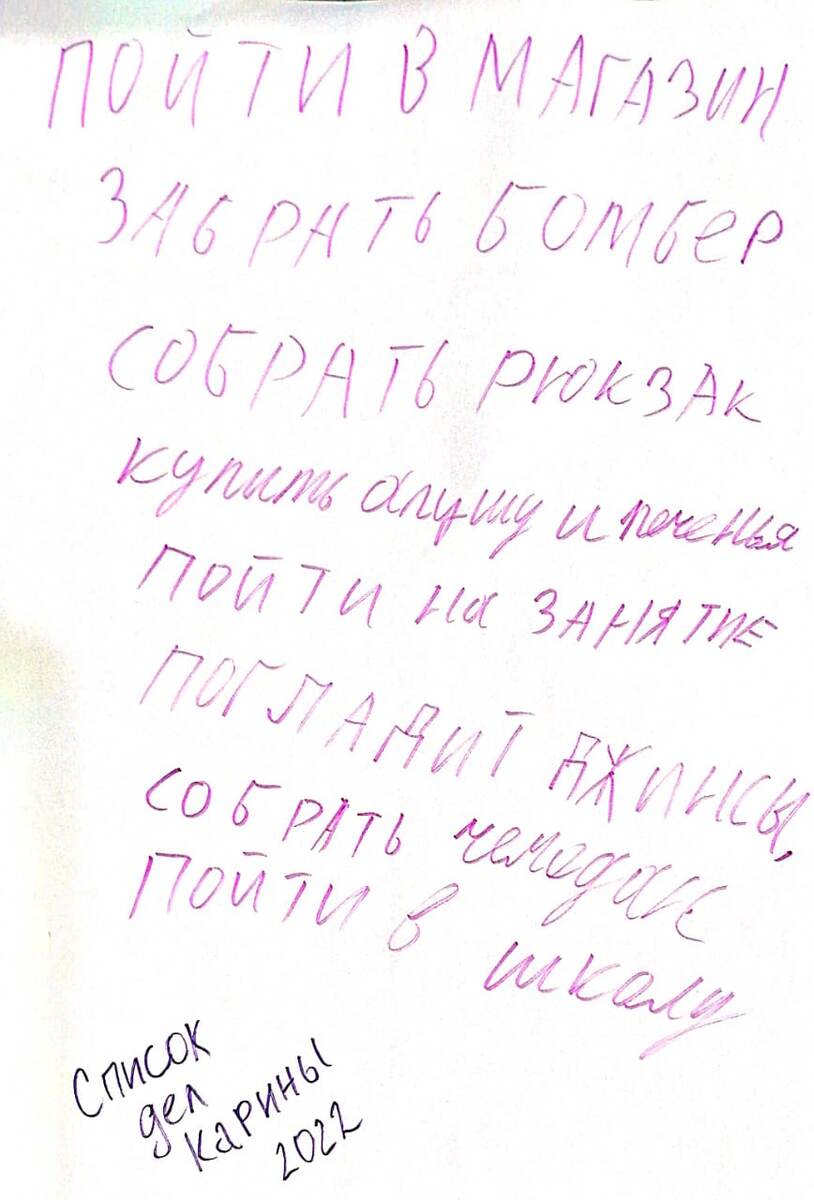 ПОЙТИ В МАГАЗИН
ЗАБРАТЬ БОМБЕР
СОБРАТЬ РЮКЗАК
купить и печенья
ПОЙТИ на ЗАНЯТИЕ
ПОГЛАДИТ ДЖИНСЫ,
СОБРАТЬ чемодан
ПОЙТИ в школу
Список
дел
Карины
2022